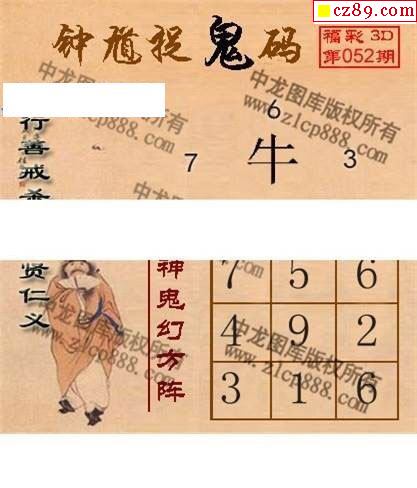 cz89.com
钟馗捉鬼码
福彩 3D
第052期
中龙图库版权所有
www.zlcp888.com
6
7 牛 3
行善戒杀
贤仁义
神鬼幻方阵
7 5 6
4 9 2
3 1 6
中龙图库版权所有
www.zlcp888.com